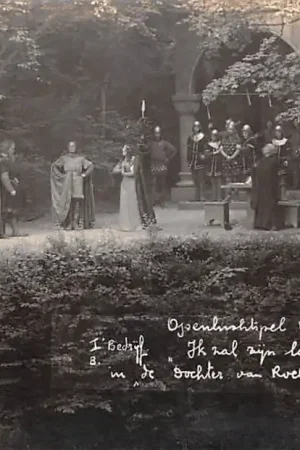 Openluchtspel
I Bedrijf " Ik zal zijn
3.
in "de Dochter van